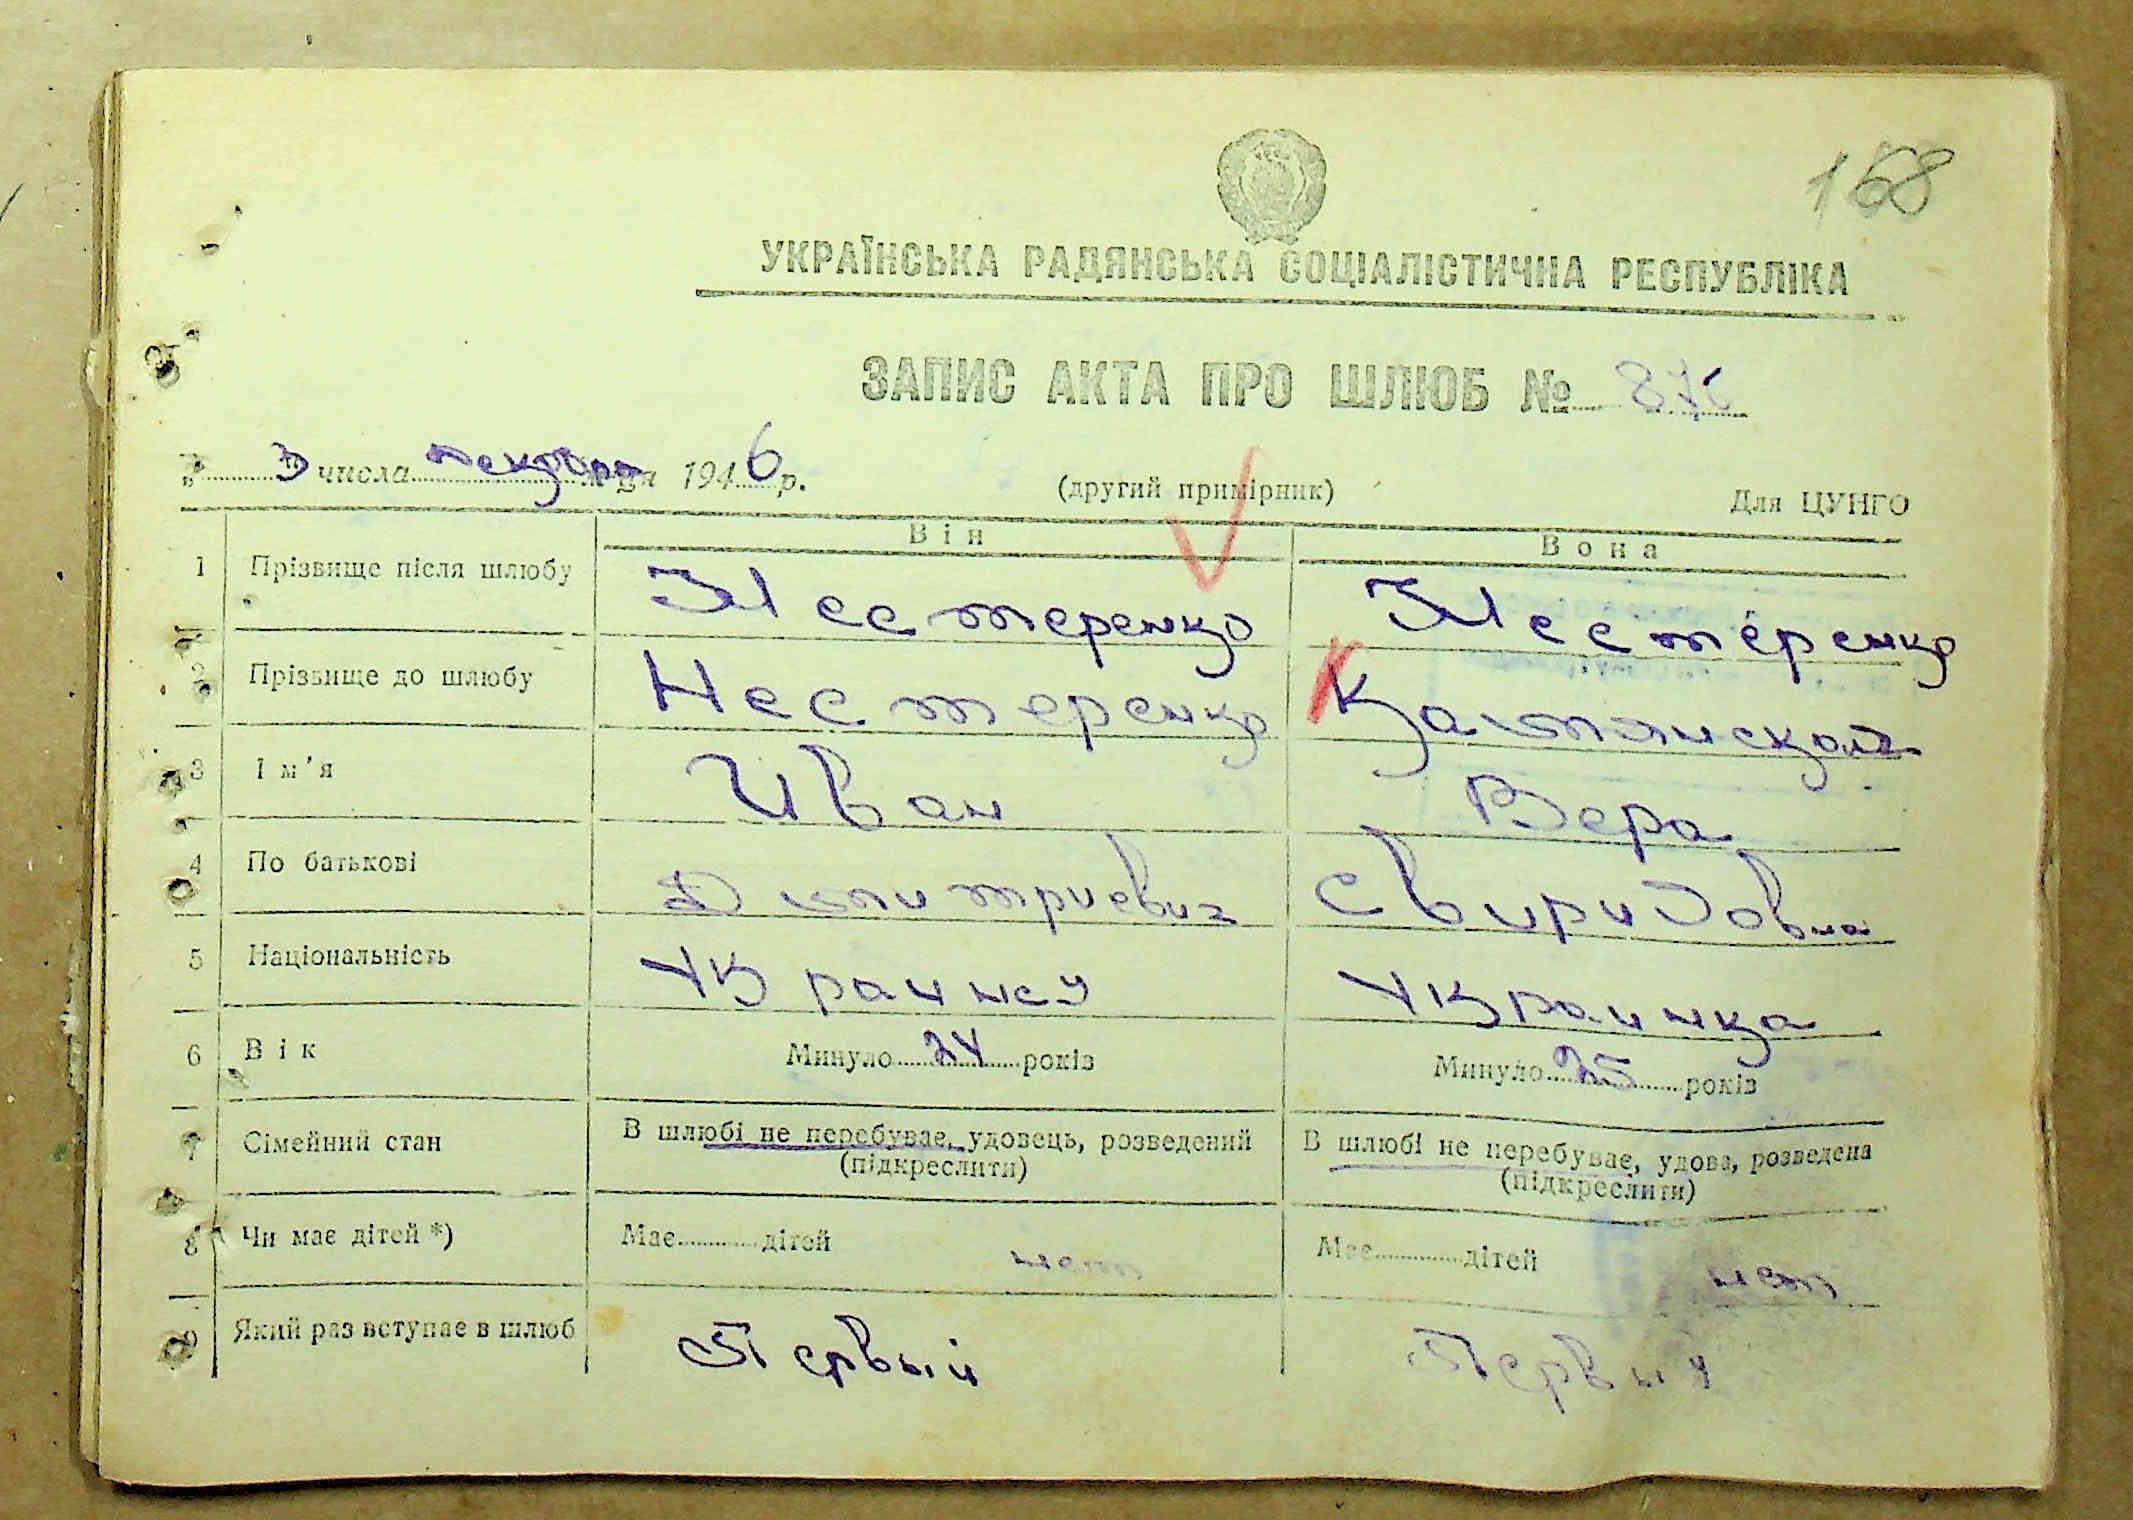 168
УКРАЇНСЬКА РАДЯНСЬКА СОЦІАЛІСТИЧНА РЕСПУБЛІКА
ЗАПИС АКТА ПРО ШЛЮБ № 876
„ 3 " числа декабря м-ця 1946 р. (другий примірник) Для ЦУНГО
Він Вона
1 Прізвище після шлюбу Нестеренко Нестеренко
2 Прізвище до шлюбу Нестеренко
3 Ім'я Иван Вера
4 По батькові Дмитриевич Свиридовна
5 Національність Украинец Украинка
6 Вік Минуло 24 років Минуло 25 років
7 Сімейний стан В шлюбі не перебуває, удовець, розведений В шлюбі не перебуває, удова, розведена
(підкреслити) (підкреслити)
8 Чи має дітей *) Має дітей нет Має дітей нет
9 Який раз вступає в шлюб Первый Первый